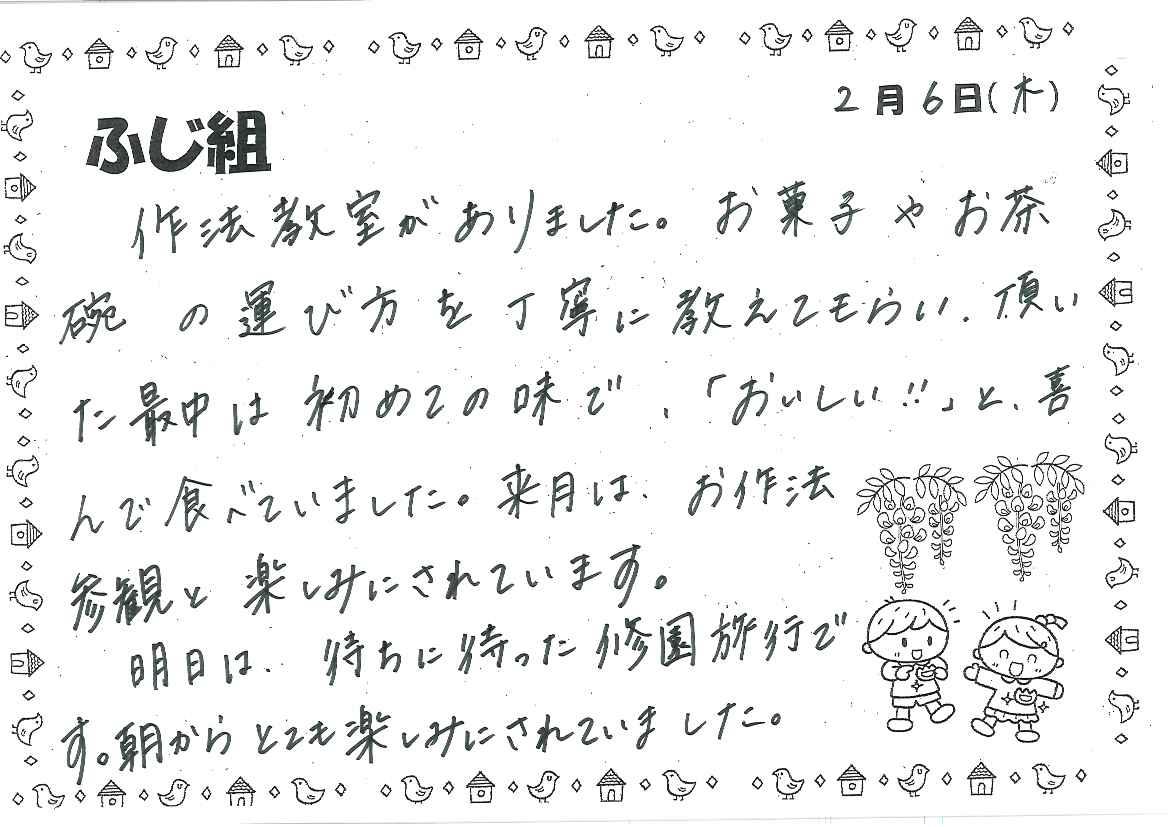 2月6日(木)
ふじ組
作法教室がありました。お菓子やお茶
碗の運び方を丁寧に教えてもらい、頂い
た最中は初めての味で、「おいしい!!」と、喜
んで食べていました。来月は、お作法
参観と楽しみにされています。
明日は、待ちに待った修園旅行で
す。朝からとても楽しみにされていました。